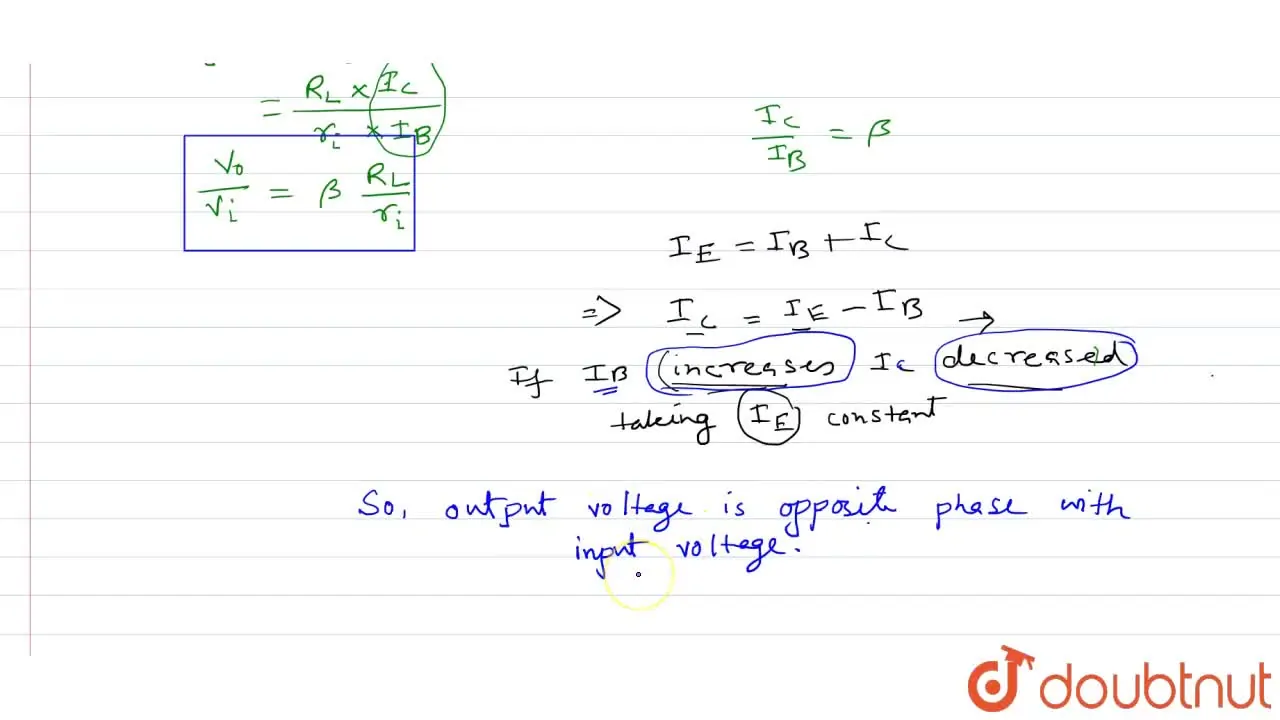 = R_L × I_C / r_i × I_B
I_C / I_B = β
V_o / V_i = β R_L / r_i
I_E = I_B + I_C
=> I_C = I_E - I_B →
If I_B (increases I_C decreased
taking I_E constant
So, output voltage is opposite phase with
input voltage.
doubtnut